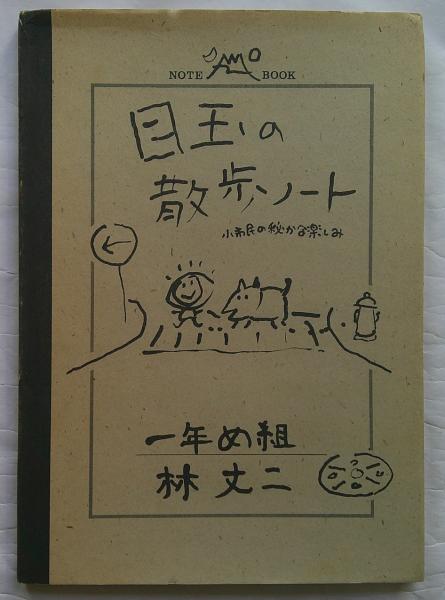 NOTE BOOK
目玉の
散歩ノート
小市民の秘かな楽しみ
一年め組
林丈二